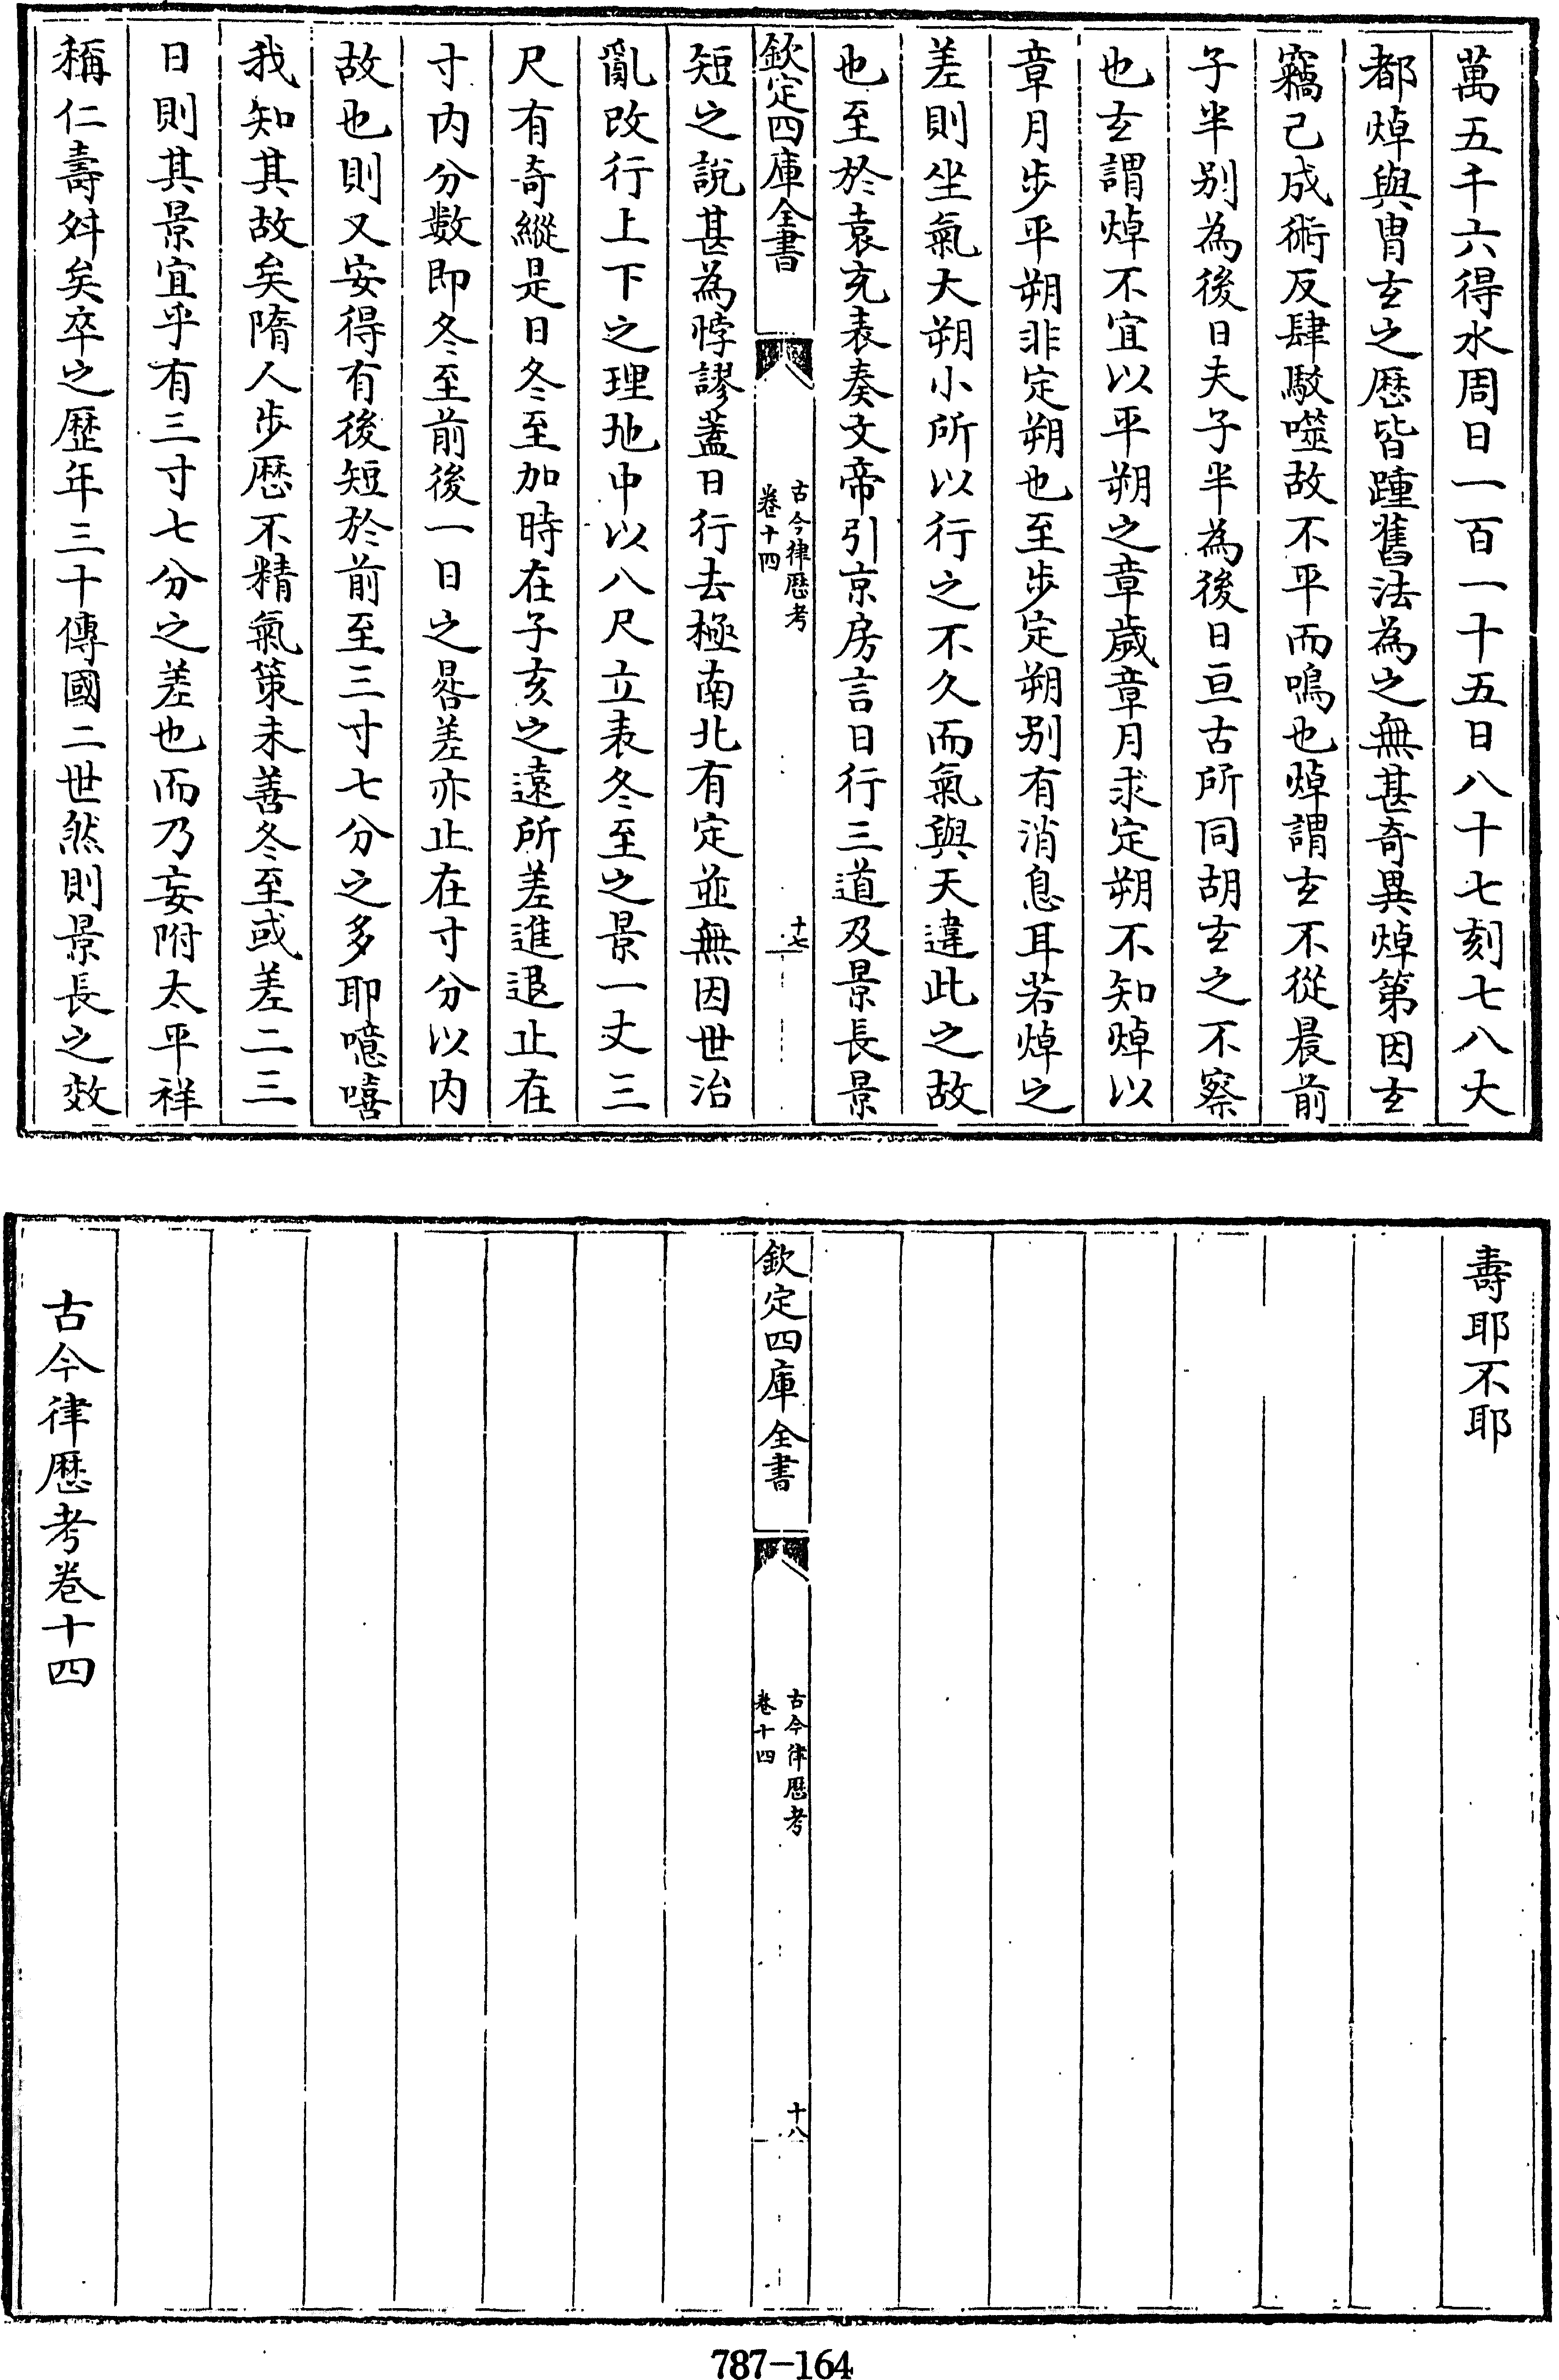 萬五千六得水周日一百一十五日八十七刻七八大
都焯與胄𤣥之厯皆踵舊法為之無甚奇異焯第因𤣥
竊己成術反肆駁噬故不平而鳴也焯謂𤣥不從晨前
子半别為後日夫子半為後日亘古所同胡𤣥之不察
也𤣥謂焯不宜以平朔之章歲章月求定朔不知焯以
章月步平朔非定朔也至步定朔别有消息耳若焯之
差則坐氣大朔小所以行之不久而氣與天違此之故
也至於袁充表奏文帝引京房言日行三道及景長景
欽定四庫全書
古今律厯考
卷十四
十七
短之說甚為悖謬蓋日行去極南北有定並無因世治
亂改行上下之理地中以八尺立表冬至之景一丈三
尺有奇縱是日冬至加時在子亥之遠所差進退止在
寸内分數即冬至前後一日之晷差亦止在寸分以内
故也則又安得有後短於前至三寸七分之多耶噫嘻
我知其故矣隋人步厯不精氣策未善冬至或差二三
日則其景宜乎有三寸七分之差也而乃妄附太平祥
稱仁壽舛矣卒之歴年三十傳國二世然則景長之效
壽耶不耶
欽定四庫全書
古今律厯考
卷十四
十八
古今律厯考卷十四
787-164